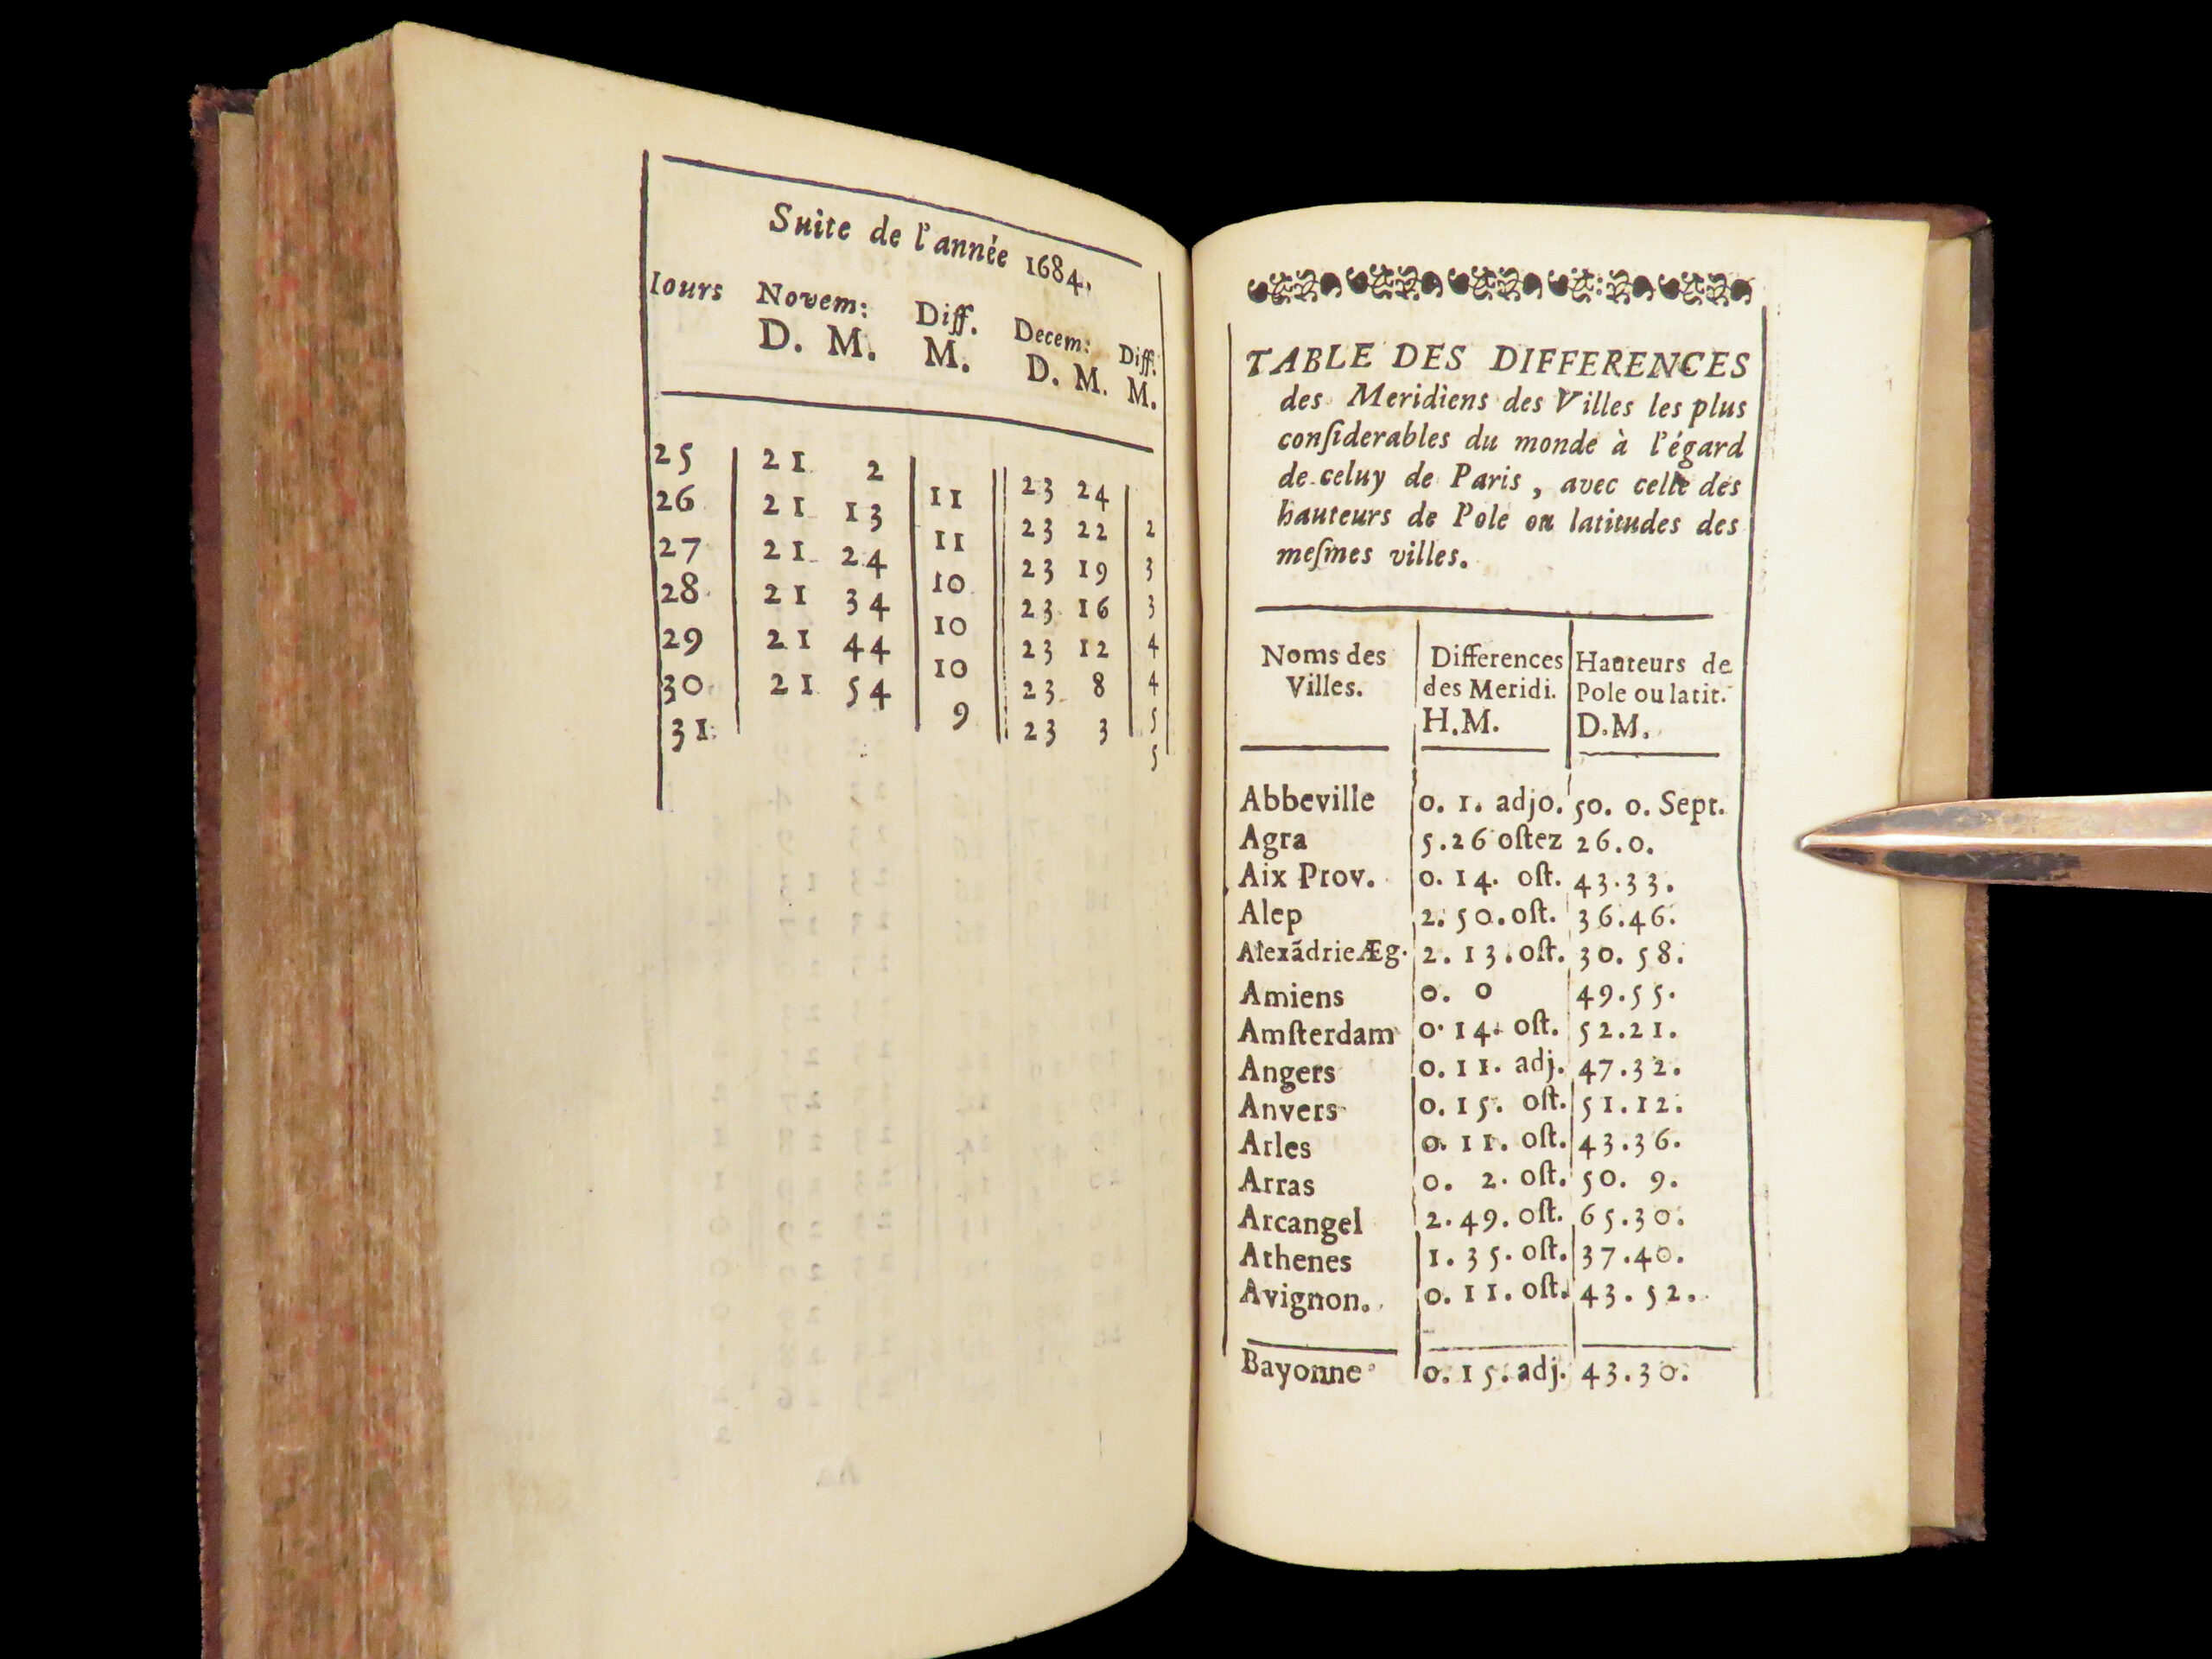 Suite de l'année 1684.
Iours Novem: Diff. Decem: Diff.
D. M. M. D. M. M.
25 21 2 11 23 24 2
26 21 13 11 23 22 3
27 21 24 10 23 19 3
28 21 34 10 23 16 4
29 21 44 10 23 12 4
30 21 54 9 23 8 5
31 23 3 5
TABLE DES DIFFERENCES
des Meridiens des Villes les plus
conſiderables du monde à l'égard
de celuy de Paris, avec celle des
hauteurs de Pole ou latitudes des
meſmes villes.
Noms des Differences Hauteurs de
Villes. des Meridi. Pole ou latit.
H.M. D.M.
Abbeville 0. 1. adjo. 50. 0. Sept.
Agra 5.26 oſtez 26.0.
Aix Prov. 0. 14. oſt. 43.33.
Alep 2. 50. oſt. 36.46.
Alexãdrie Æg. 2. 13. oſt. 30. 58.
Amiens 0. 0 49.55.
Amſterdam 0. 14. oſt. 52.21.
Angers 0. 11. adj. 47.32.
Anvers 0. 15. oſt. 51.12.
Arles 0. 11. oſt. 43.36.
Arras 0. 2. oſt. 50. 9.
Arcangel 2.49. oſt. 65.30.
Athenes 1. 35. oſt. 37.40.
Avignon. 0. 11. oſt. 43. 52.
Bayonne 0. 15. adj. 43.30.